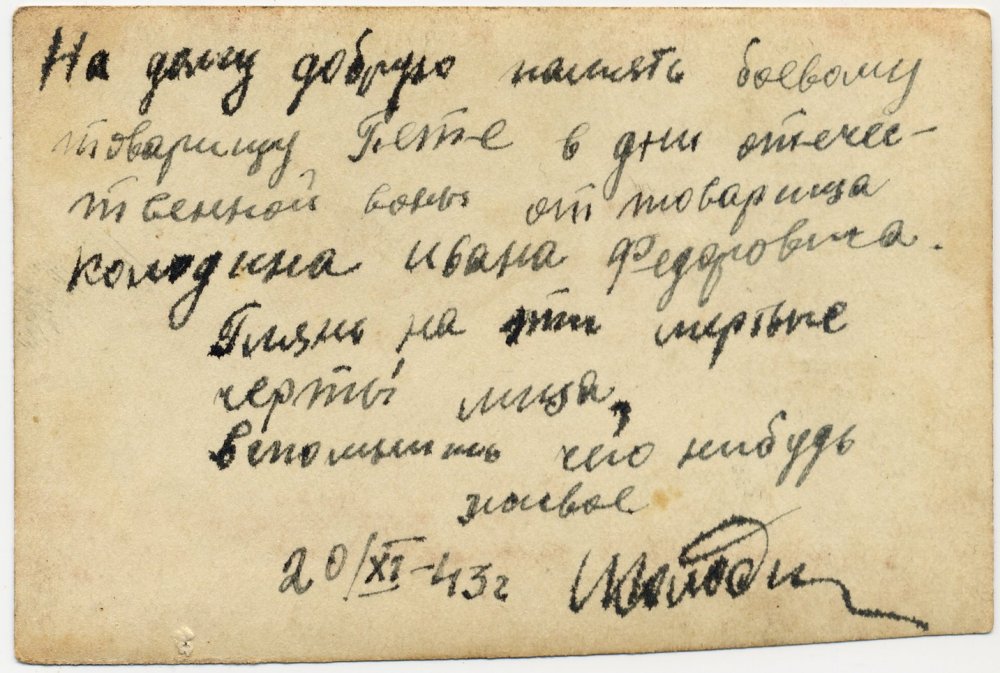 На долгу добрую память боевому
товарищу Пете в дни отечес-
твенной воны от товарища
Колодина Ивана Федоровича.
Глянь на эти мертвые
черты лица,
вспомнишь чего нибудь
живое
20/XI-43г